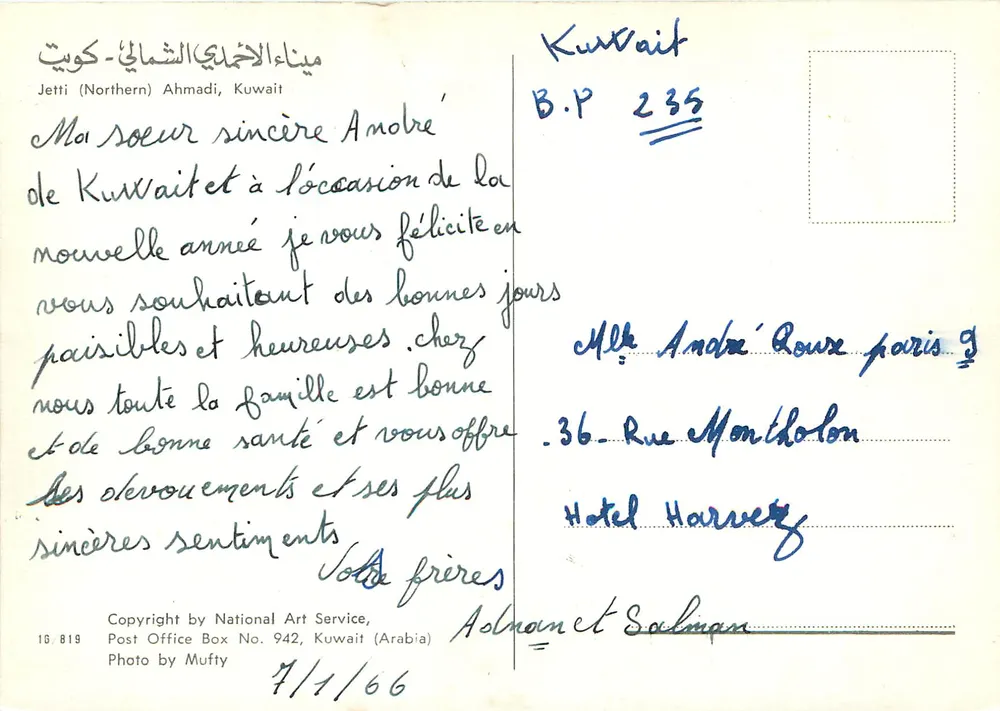 ميناء الاحمدي الشمالي - كويت
Jetti (Northern) Ahmadi, Kuwait
Ma soeur sincère André
de Kuwait et à l'óccasion de la
nouvelle année je vous félicite en
vous souhaitant des bonnes jours
paisibles et heureuses . chez
nous toute la famille est bonne
et de bonne santé et vous offre
ses devouements et ses plus
sincères sentiments
Votre frères
Adnan et Salman
7/1/66
16 819
Copyright by National Art Service,
Post Office Box No. 942, Kuwait (Arabia)
Photo by Mufty
Kuwait
B.P 235
Mlle André Rouze paris 9
.36- Rue Montholon
Hotel Harvez